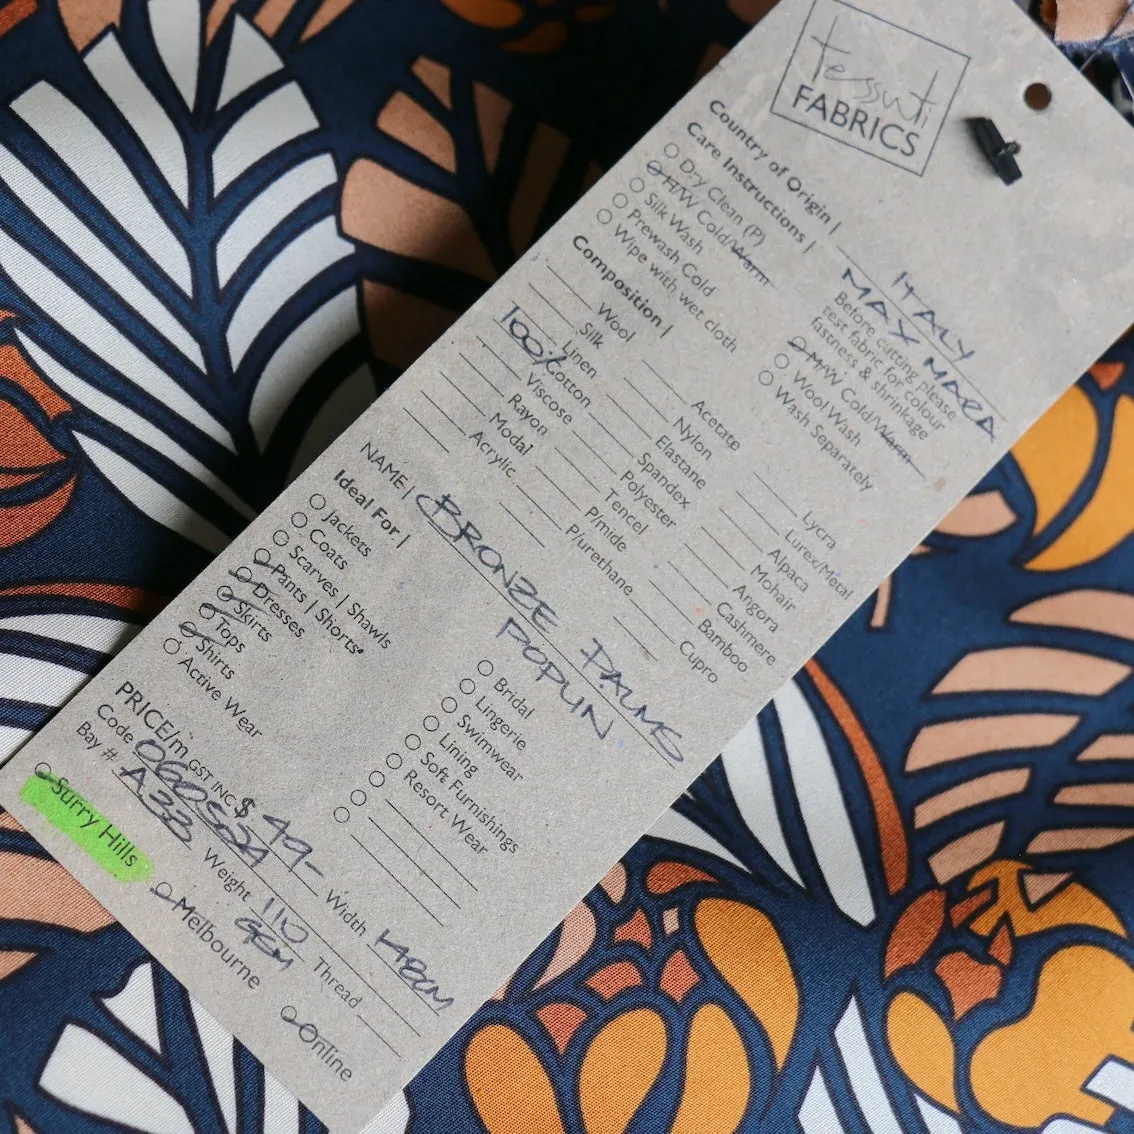 tessuti
FABRICS
Country of Origin | ITALY
Care Instructions | MAX MARA
Dry Clean (P)
H/W Cold/Warm
Silk Wash
Prewash Cold
Wipe with wet cloth
Before cutting please
test fabric for colour
fastness & shrinkage
M/W Cold/Warm
Wool Wash
Wash Separately
Composition |
Wool
Silk
Linen
100% Cotton
Viscose
Rayon
Modal
Acrylic
Acetate
Nylon
Elastane
Spandex
Polyester
Tencel
P/mide
P/urethane
Lycra
Lurex/Metal
Alpaca
Mohair
Angora
Cashmere
Bamboo
Cupro
NAME | BRONZE PALMS
POPLIN
Ideal For |
Jackets
Coats
Scarves | Shawls
Pants | Shorts
Dresses
Skirts
Tops
Shirts
Active Wear
Bridal
Lingerie
Swimwear
Lining
Soft Furnishings
Resort Wear
PRICE/m GST INC $ 49-
Code Width 148CM
Bay # A33 Weight 110 GSM Thread
Surry Hills Melbourne Online